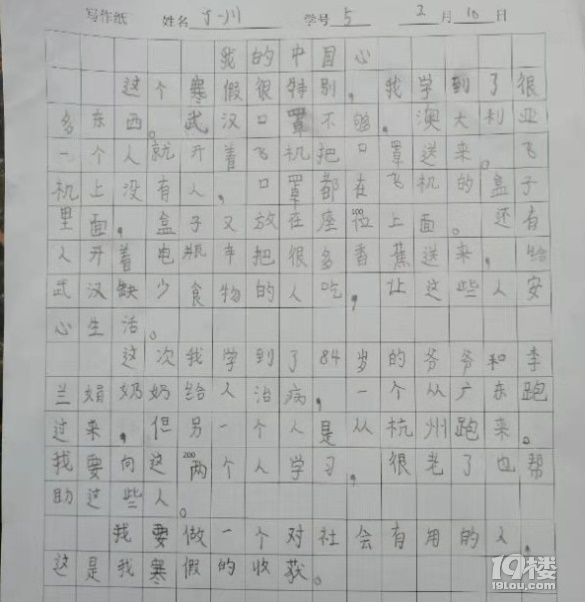 写作纸 姓名 丁一川 学号 5 2月10日
我的中国心
这个寒假很特别，我学到了很
多东西。武汉口罩不够，澳大利亚
一个人就开着飞机把口罩送来。飞
机上没有人，口罩都在飞机的盒子
里面，盒子又放在座位上面。还有
100
人开着电瓶车把很多香蕉送来，给
武汉缺少食物的人吃，让这些人安
心生活。
这次我学到了84岁的爷爷和李
兰娟奶奶给人治病，一个从广东跑
过来，但另一个人是从杭州跑来。
我要向这两个人学习，很老了也帮
200
助这些人。
我要做一个对社会有用的人，
这是我寒假的收获。
19楼
19lou.com